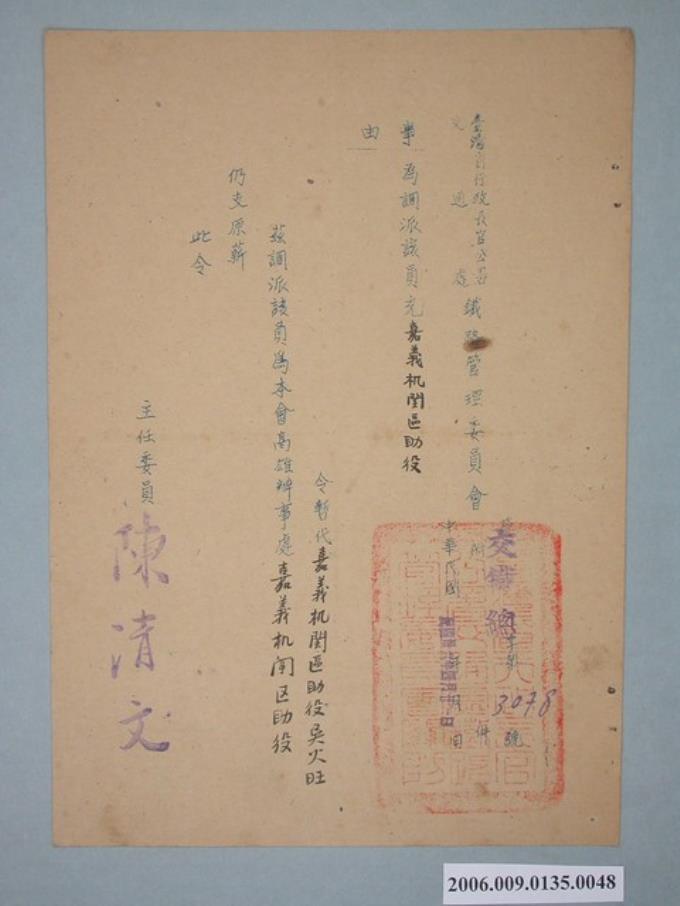 臺灣省行政長官公署
交通處
鐵路管理委員會
交鐵總字第3078號
附件
中華民國 年 月 日
事由
為調派該員充嘉義机関區助役
令暫代嘉義机関區助役吳火旺
茲調派該員為本會高雄辦事處嘉義机関区助役
仍支原薪
此令
主任委員
陳清文
2006.009.0135.0048